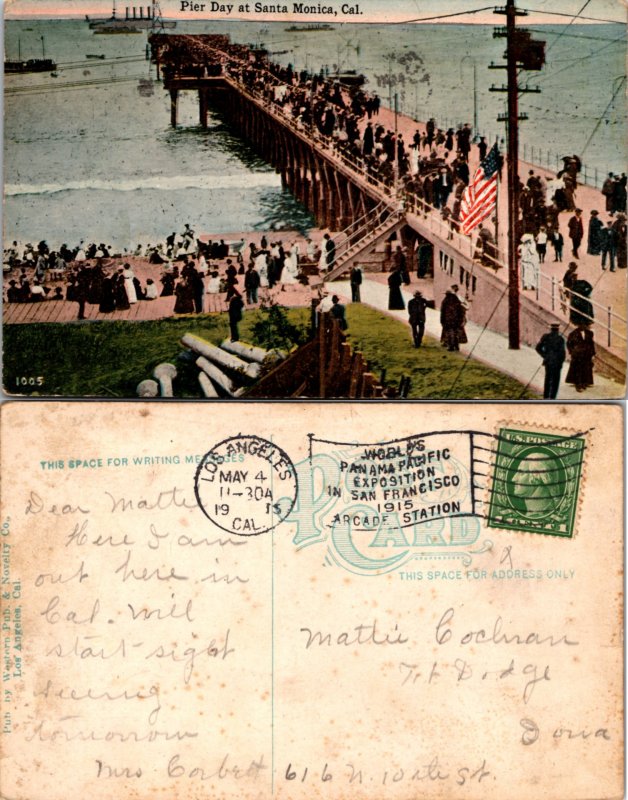 Pier Day at Santa Monica, Cal.
1005
THIS SPACE FOR WRITING MESSAGES
LOS ANGELES
MAY 4
11-30A
1915
CAL.
WORLD'S
PANAMA PACIFIC
EXPOSITION
IN SAN FRANCISCO
1915
ARCADE STATION
U.S. POSTAGE
POST CARD
THIS SPACE FOR ADDRESS ONLY
Pub by Western Pub. & Novelty Co.,
Los Angeles, Cal.
Dear Mattie
Here I am
out here in
Cal. Will
start sight
seeing
tomorrow
Mrs Corbett 616 N. 10 ate st.
Mattie Cochran
Ft Dodge
Iowa